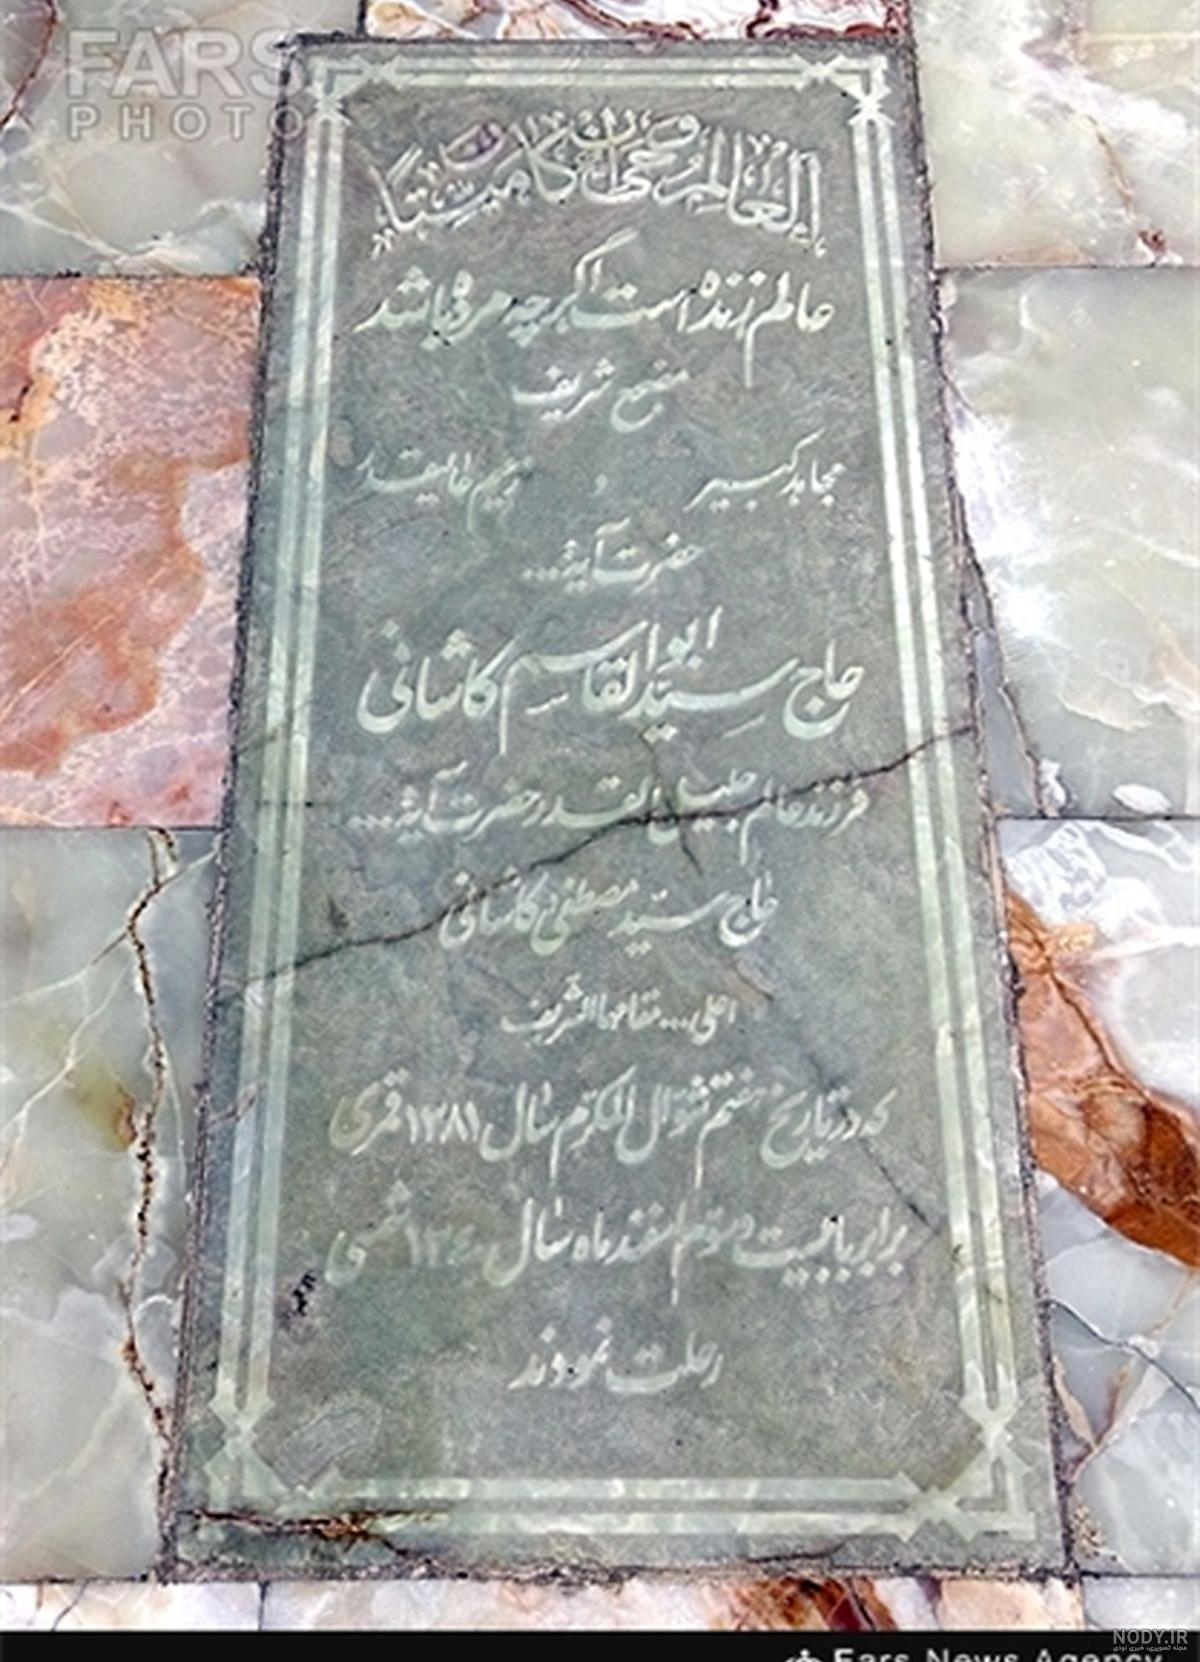 FARS
PHOTO
العالم حی و ان کان میتا
عالم زنده است اگر چه مرده باشد
مضجع شریف
مجاهد کبیر و زعیم عالیقدر
حضرت آیة ا...
حاج سید ابوالقاسم کاشانی
فرزند عالم جلیل القدر حضرت آیة ا...
حاج سید مصطفی کاشانی
اعلی ... مقامهما الشریف
که در تاریخ هفتم شوال المکرم سال ۱۳۸۱ قمری
برابر با بیست و سوم اسفند ماه سال ۱۳۴۰ شمسی
رحلت نمودند
NODY.IR
Fars News Agency